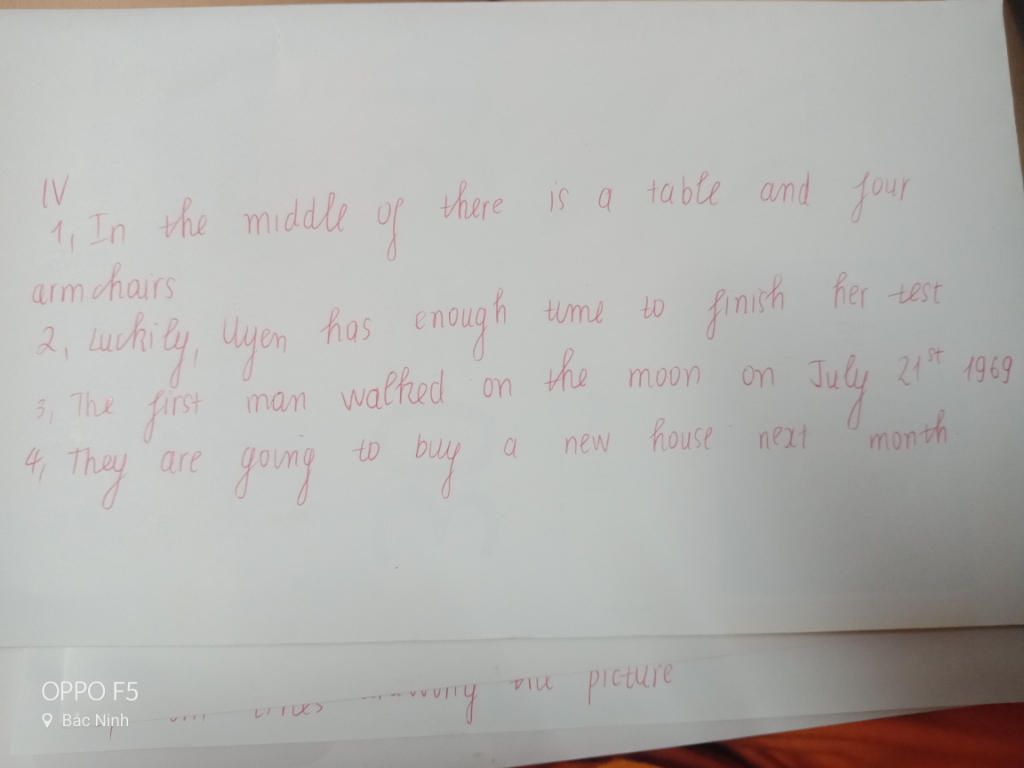 IV
1, In the middle of there is a table and four
armchairs
2, Luckily, Uyen has enough time to finish her test
3, The first man walked on the moon on July 21st 1969
4, They are going to buy a new house next month
picture
OPPO F5
Bắc Ninh